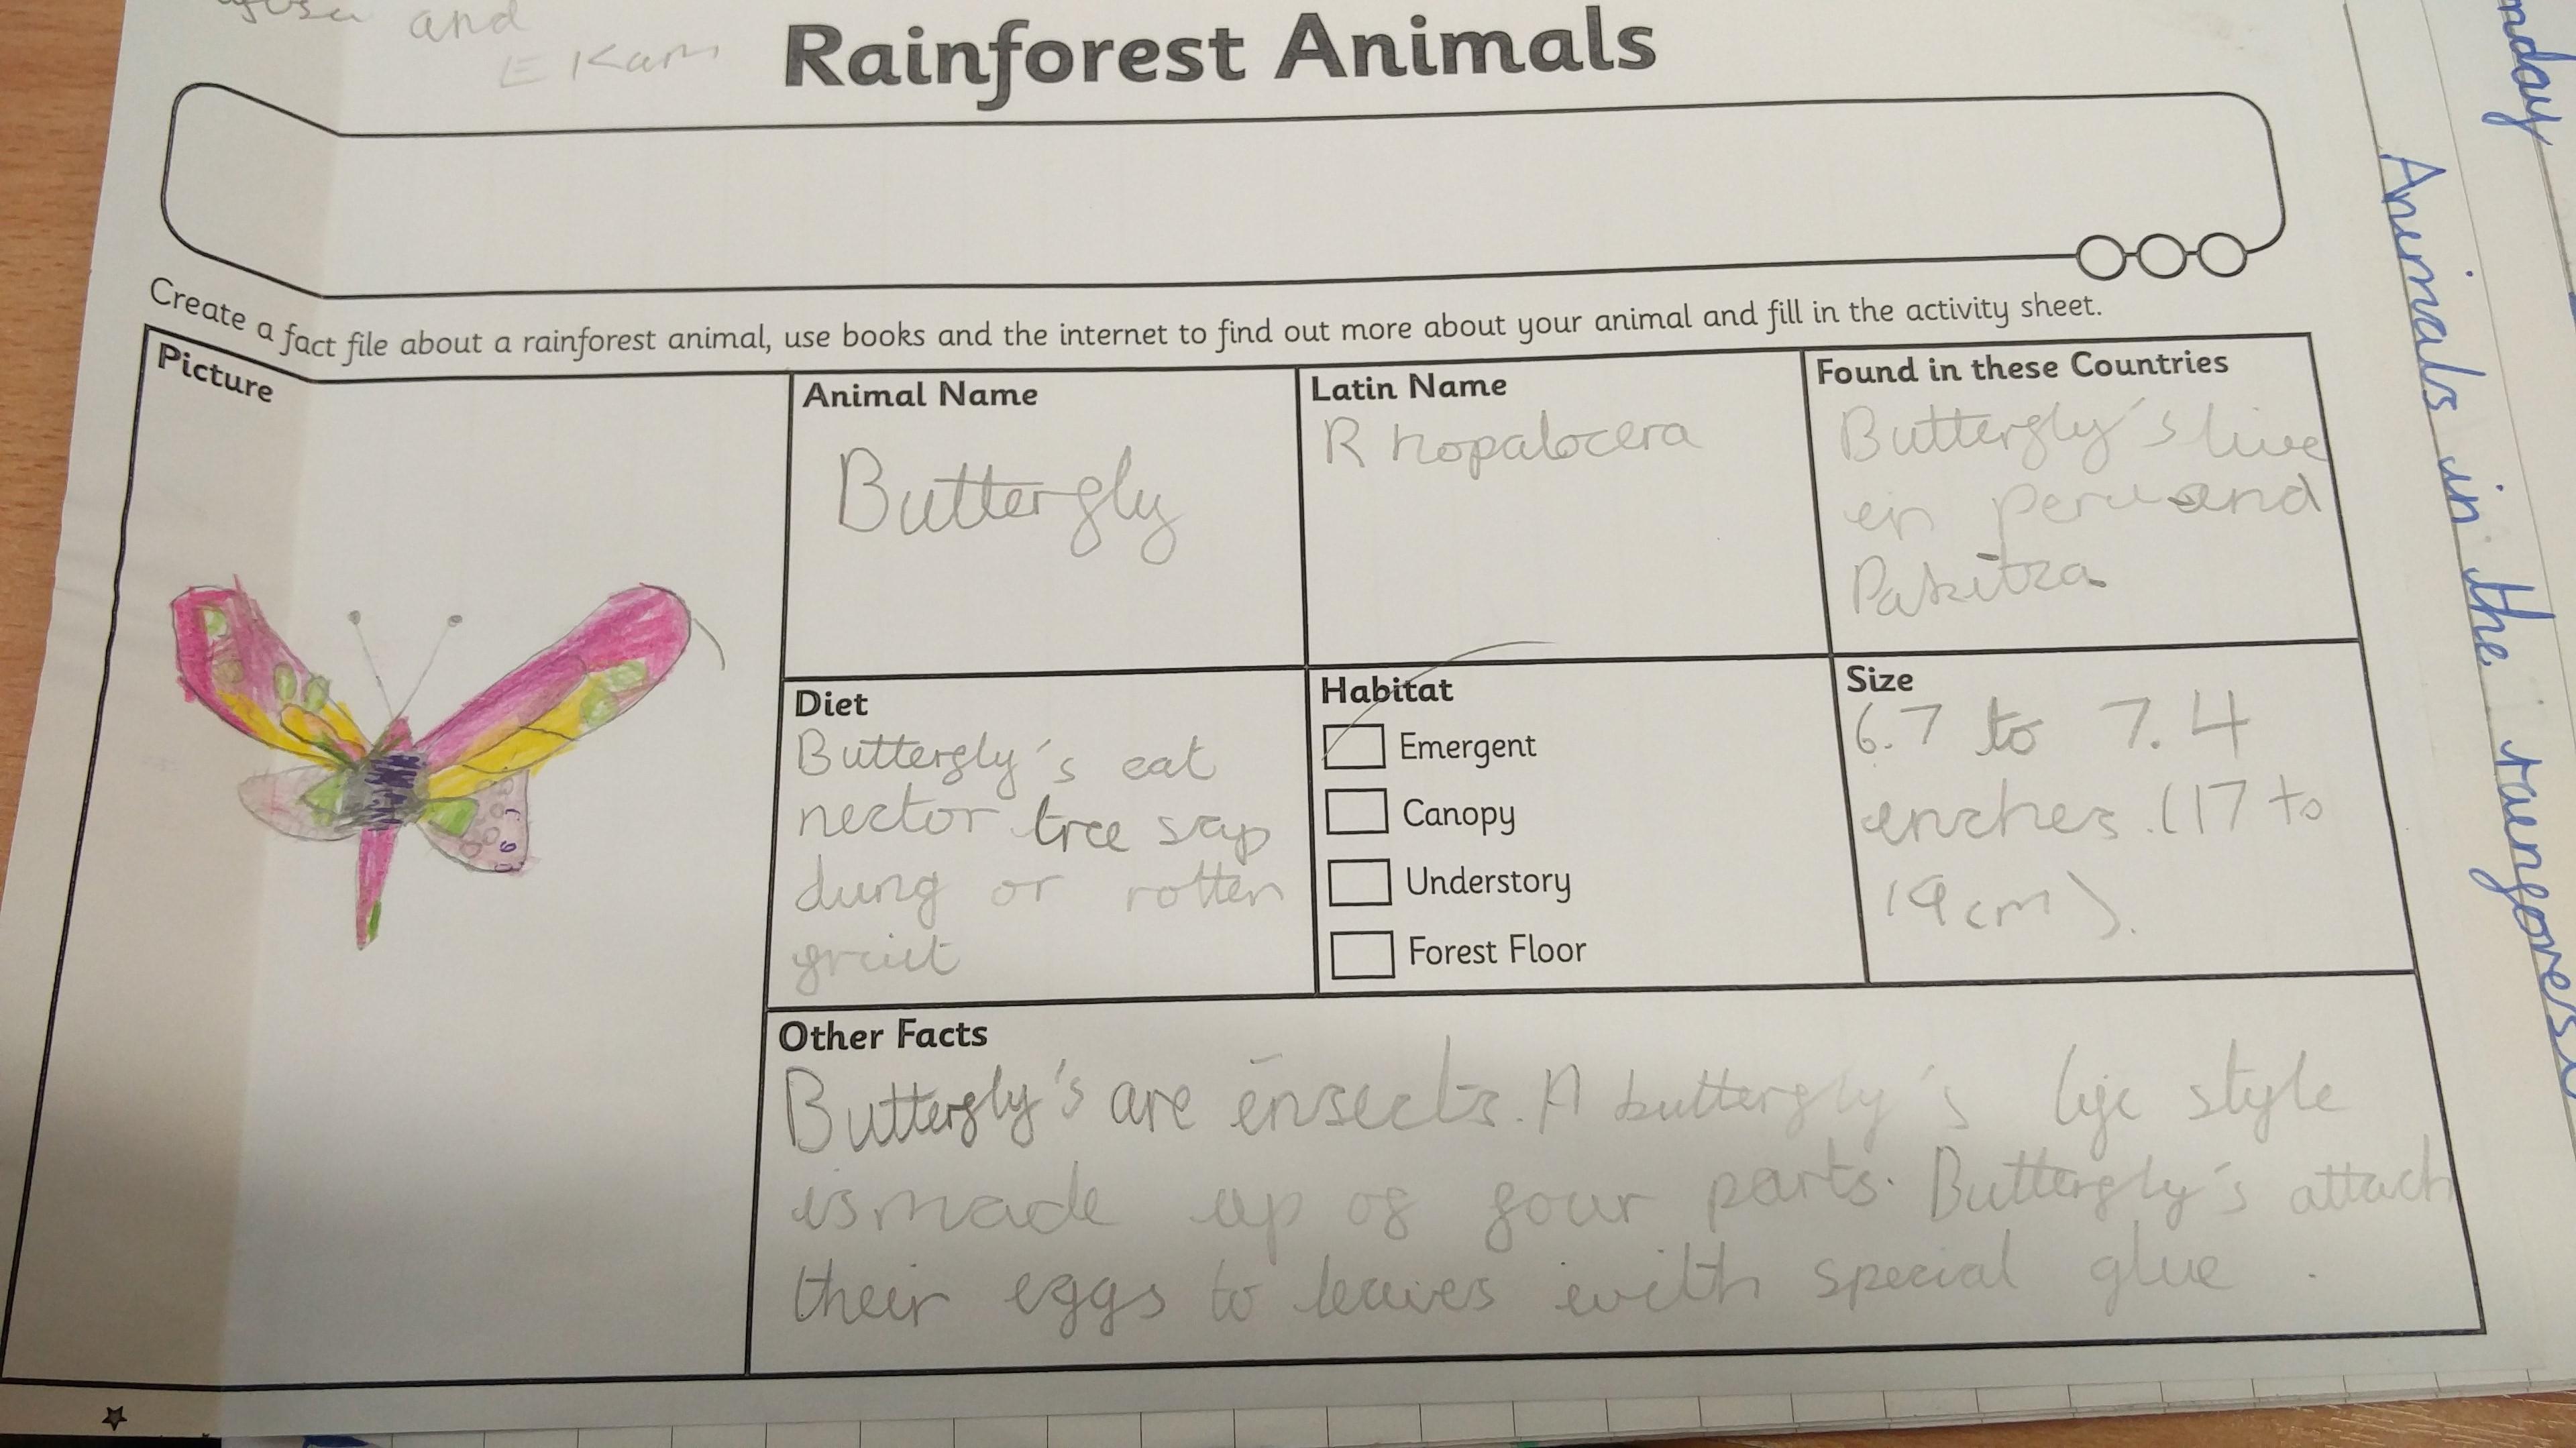 and
Ekam
Rainforest Animals
Create a fact file about a rainforest animal, use books and the internet to find out more about your animal and fill in the activity sheet.
Picture
Animal Name
Butterfly
Latin Name
Rhopalocera
Found in these Countries
Butterfly's live
in peru and
Pakitza
Diet
Butterfly's eat
nector tree sap
dung or rotten
fruit
Habitat
Emergent
Canopy
Understory
Forest Floor
Size
6.7 to 7.4
inches. (17 to
19cm).
Other Facts
Butterfly's are insects. A butterfly's life style
is made up of four parts. Butterfly's attach
their eggs to leaves with special glue.
Animals in the rainforest